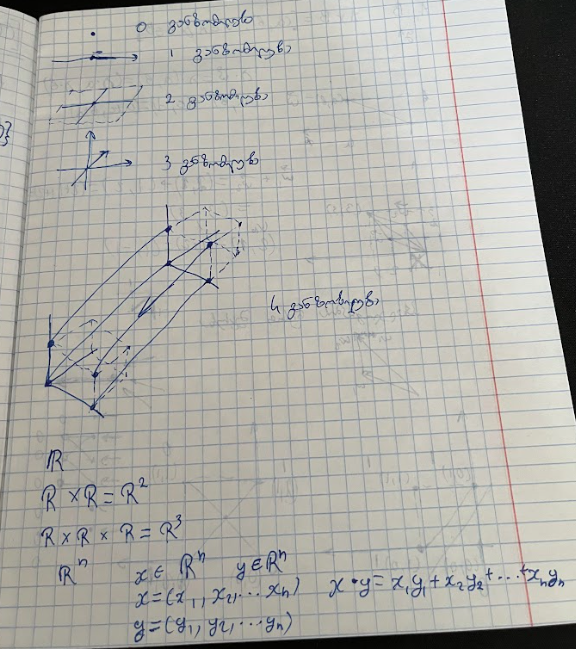 0 განზომილება
1 განზომილება
2 განზომილება
3 განზომილება
4 განზომილება
ℝ
ℝ × ℝ = ℝ²
ℝ × ℝ × ℝ = ℝ³
ℝⁿ x ∈ ℝⁿ y ∈ ℝⁿ
x = (x₁, x₂, ... xₙ) x · y = x₁y₁ + x₂y₂ + ... + xₙyₙ
y = (y₁, y₂, ... yₙ)